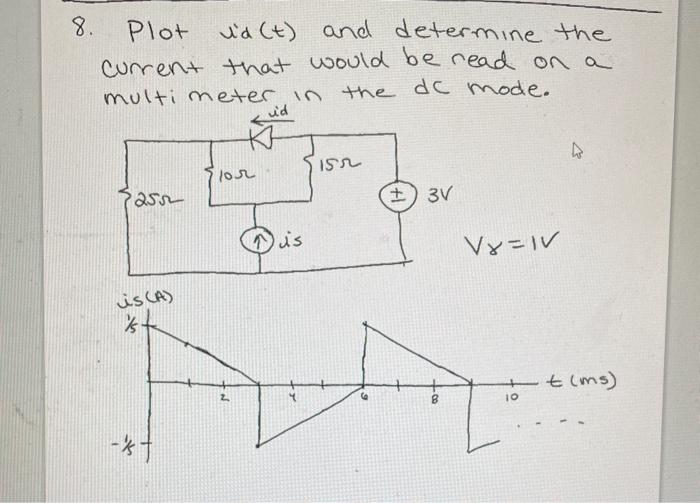 8. Plot id(t) and determine the
current that would be read on a
multimeter in the dc mode.
id
10Ω
15Ω
25Ω
± 3V
is
Vγ=1V
is(A)
1/5
t (ms)
2 4 6 8 10
-1/5